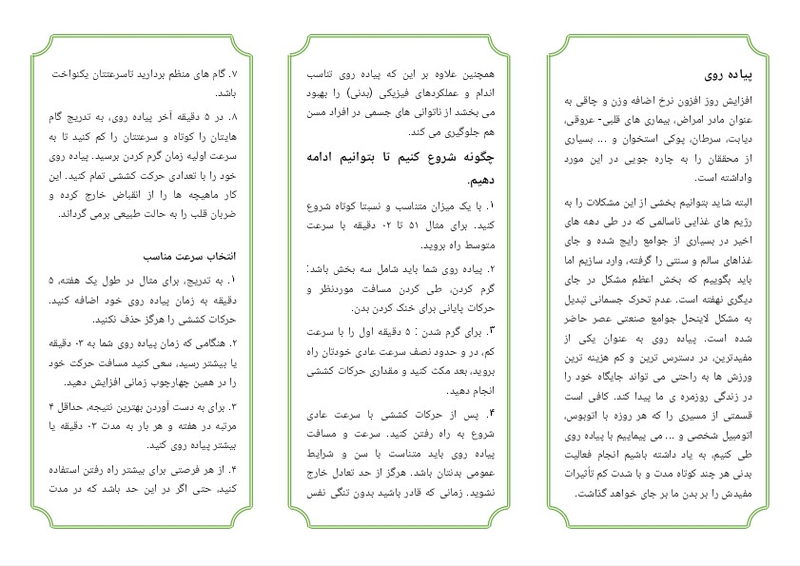 پیاده روی
افزایش روز افزون نرخ اضافه وزن و چاقی به
عنوان مادر امراض، بیماری های قلبی- عروقی،
دیابت، سرطان، پوکی استخوان و ... بسیاری
از محققان را به چاره جویی در این مورد
واداشته است.
البته شاید بتوانیم بخشی از این مشکلات را به
رژیم های غذایی ناسالمی که در طی دهه های
اخیر در بسیاری از جوامع رایج شده و جای
غذاهای سالم و سنتی را گرفته، وارد سازیم اما
باید بگوییم که بخش اعظم مشکل در جای
دیگری نهفته است. عدم تحرک جسمانی تبدیل
به مشکل لاینحل جوامع صنعتی عصر حاضر
شده است. پیاده روی به عنوان یکی از
مفیدترین، در دسترس ترین و کم هزینه ترین
ورزش ها به راحتی می تواند جایگاه خود را
در زندگی روزمره ی ما پیدا کند. کافی است
قسمتی از مسیری را که هر روزه با اتوبوس،
اتومبیل شخصی و ... می پیماییم با پیاده روی
طی کنیم، به یاد داشته باشیم انجام فعالیت
بدنی هر چند کوتاه مدت و با شدت کم تأثیرات
مفیدش را بر بدن ما بر جای خواهد گذاشت.
همچنین علاوه بر این که پیاده روی تناسب
اندام و عملکردهای فیزیکی (بدنی) را بهبود
می بخشد از ناتوانی های جسمی در افراد مسن
هم جلوگیری می کند.
چگونه شروع کنیم تا بتوانیم ادامه
دهیم.
۱. با یک میزان متناسب و نسبتا کوتاه شروع
کنید. برای مثال ۵۱ تا ۰۲ دقیقه با سرعت
متوسط راه بروید.
۲. پیاده روی شما باید شامل سه بخش باشد:
گرم کردن، طی کردن مسافت موردنظر و
حرکات پایانی برای خنک کردن بدن.
۳. برای گرم شدن : ۵ دقیقه اول را با سرعت
کم، در و حدود نصف سرعت عادی خودتان راه
بروید، بعد مکث کنید و مقداری حرکات کششی
انجام دهید.
۴. پس از حرکات کششی با سرعت عادی
شروع به راه رفتن کنید. سرعت و مسافت
پیاده روی باید متناسب با سن و شرایط
عمومی بدنتان باشد. هرگز از حد تعادل خارج
نشوید. زمانی که قادر باشید بدون تنگی نفس
۷. گام های منظم بردارید تاسرعتتان یکنواخت
باشد.
۸. در ۵ دقیقه آخر پیاده روی، به تدریج گام
هایتان را کوتاه و سرعتتان را کم کنید تا به
سرعت اولیه زمان گرم کردن برسید. پیاده روی
خود را با تعدادی حرکت کششی تمام کنید. این
کار ماهیچه ها را از انقباض خارج کرده و
ضربان قلب را به حالت طبیعی برمی گرداند.
انتخاب سرعت مناسب
۱. به تدریج، برای مثال در طول یک هفته، ۵
دقیقه به زمان پیاده روی خود اضافه کنید.
حرکات کششی را هرگز حذف نکنید.
۲. هنگامی که زمان پیاده روی شما به ۰۳ دقیقه
یا بیشتر رسید، سعی کنید مسافت حرکت خود
را در همین چهارچوب زمانی افزایش دهید.
۳. برای به دست آوردن بهترین نتیجه، حداقل ۴
مرتبه در هفته و هر بار به مدت ۰۳ دقیقه یا
بیشتر پیاده روی کنید.
۴. از هر فرصتی برای بیشتر راه رفتن استفاده
کنید، حتی اگر در این حد باشد که در مدت